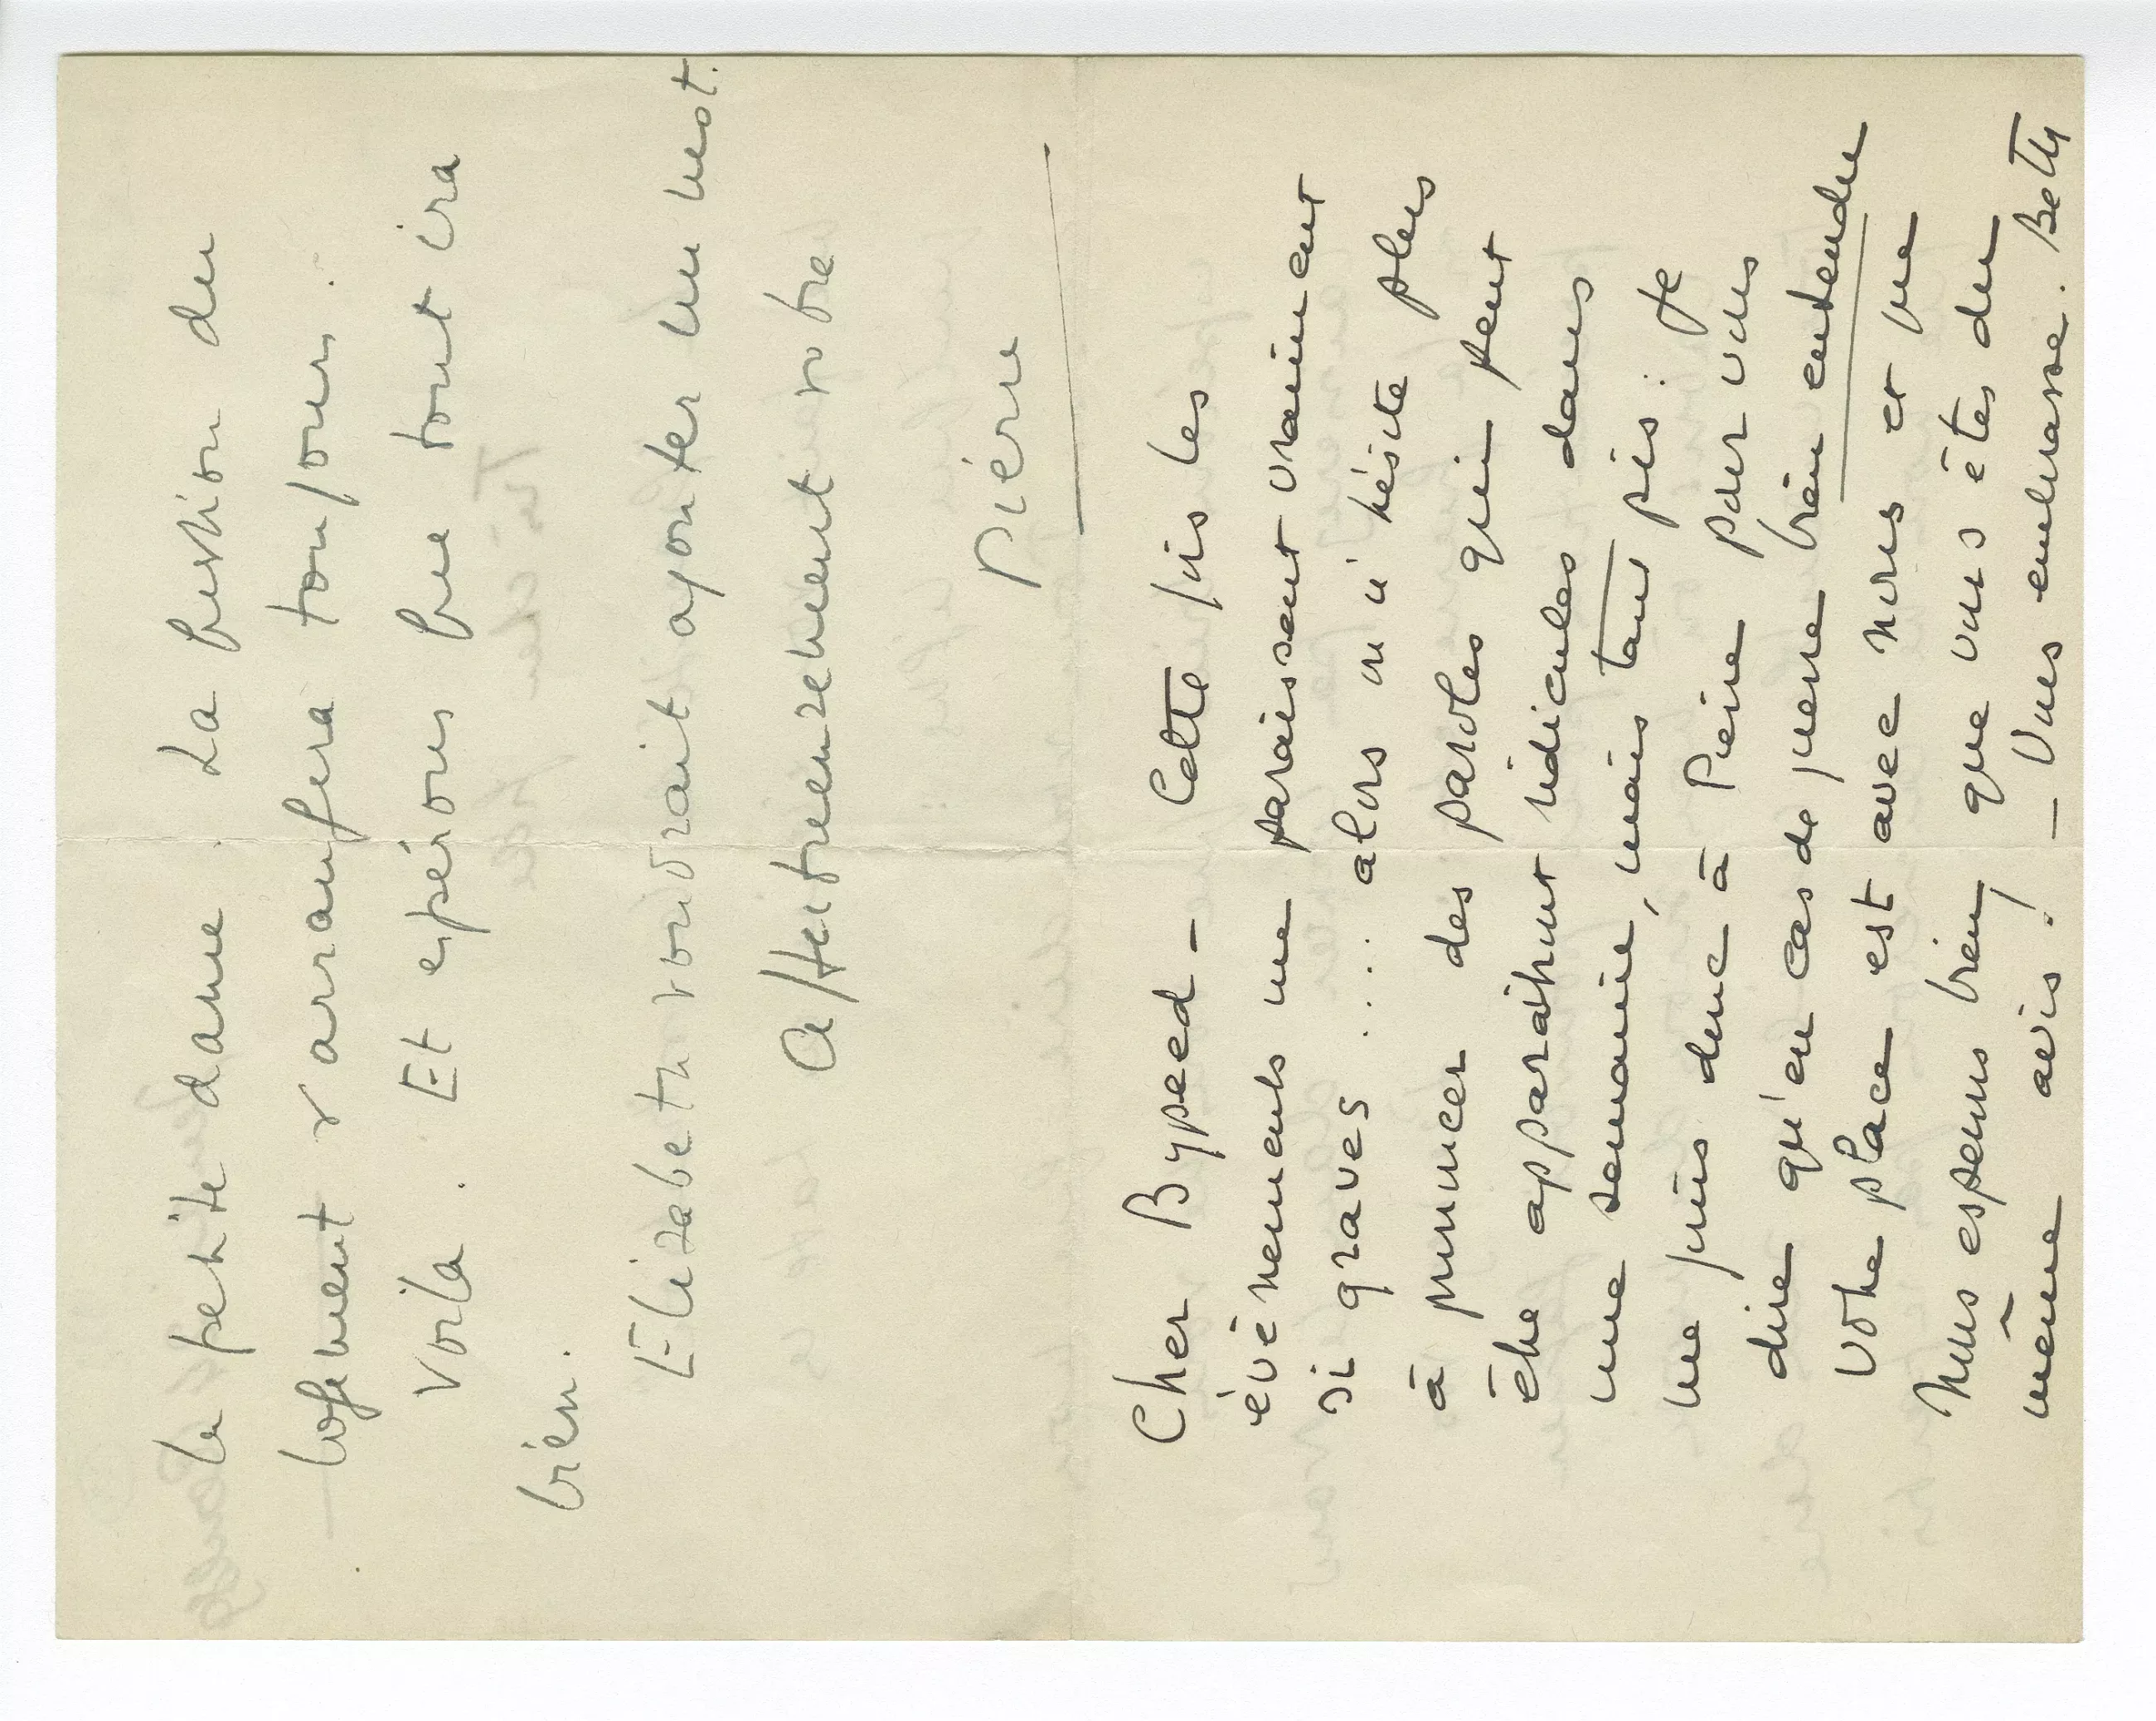 la petite dame. La question du
logement s'arrangera toujours.
Voila. Et espérons que tout ira
bien.
Elizabeth voudrait ajouter un mot.
Affectueusement votre
Pierre
Cher Bypeed - Cette fois les
évènements me paraissent vraiment
si graves .... alors on n'hésite plus
à prononcer des paroles qui peut
être apparaîtront ridicules dans
une semaine, mais tant pis : je
me joins donc à Pierre pour vous
dire qu'en cas de guerre bien entendu
votre place est avec nous et que
nous espérons bien que vous êtes du
même avis ! - Vous embrasse. Betty